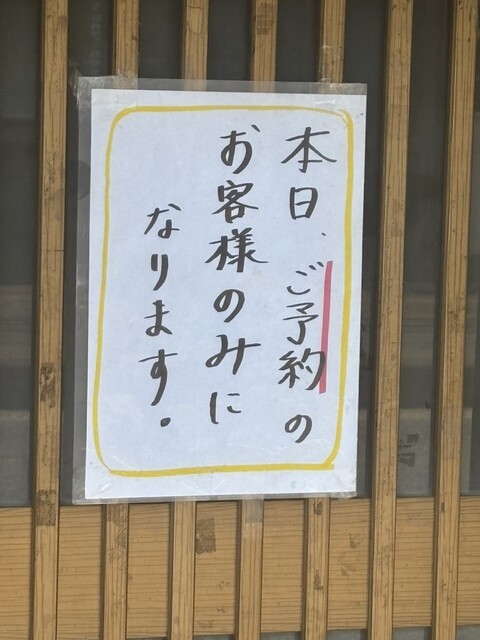 本日、ご予約の
お客様のみに
なります。